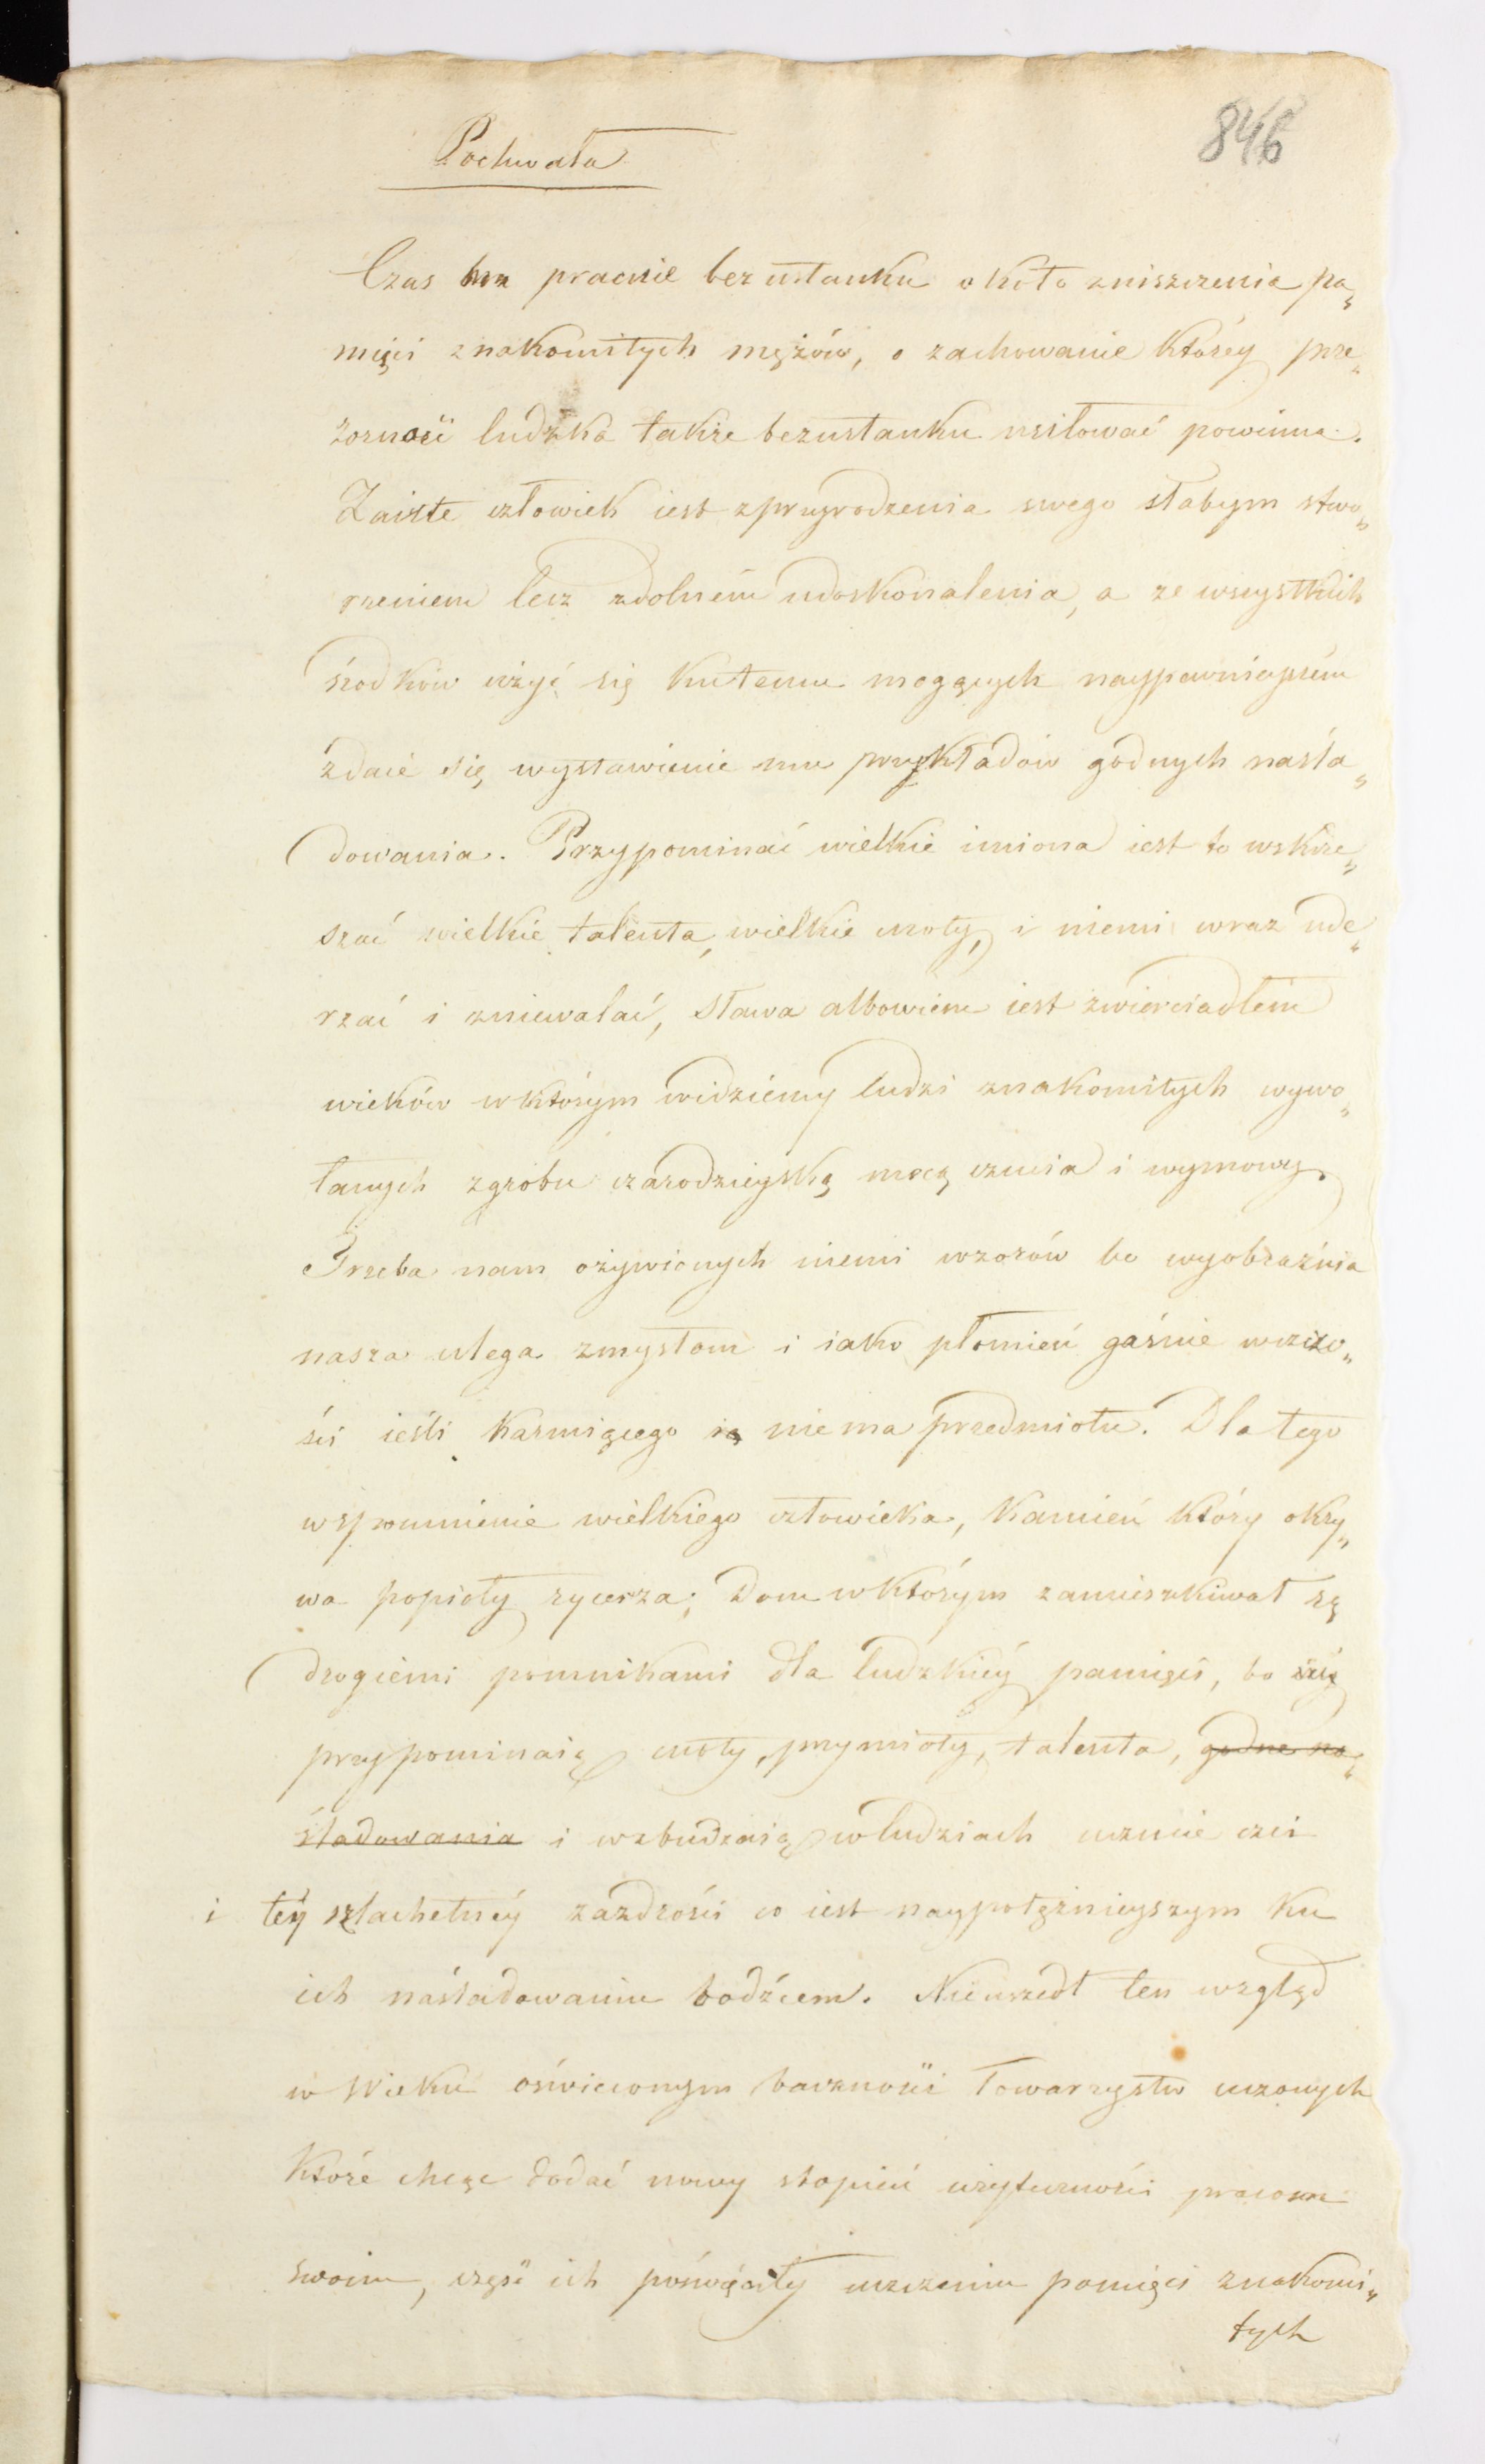 846
Pochwała
Czas pracuie bez ustanku około zniszczenia pa„
mięci znakomitych mężów, o zachowanie któréy prze„
zorność ludzka także bezustanku usiłować powinna.
Zaiste człowiek iest z przyrodzenia swego słabym stwo„
rzeniem lecz zdolném udoskonalenia, a ze wszystkich
środków użyć się ku temu mogących naypewnieyszém
zdaie się wystawienie mu przykładów godnych naśla„
dowania. Przypominać wielkie imiona iest to wskrze„
szać wielkie talenta, wielkie cnoty, i niemi wraz ude„
rzać i zniewalać, Sława albowiem iest zwierciadłem
wieków w którym widziémy ludzi znakomitych wywo„
łanych z grobu czarodzieyską mocą czucia i wymowy.
Trzeba nam ożywionych niemi wzorów bo wyobraźnia
nasza ulega zmysłom i iako płomień gaśnie w czczo„
ści ieśli karmiącego ią nie ma przedmiotu. Dla tego
wspomnienie wielkiego człowieka, kamień który okry„
wa popioły rycerza; Dom w którym zamieszkiwał są
drogiemi pomnikami dla ludzkiéy pamięci, bo
przypominaią cnoty, przymioty, talenta, godne na„
śladowania i wzbudzaią w ludziach uczucie czci
i téy szlachetnéy zazdrości co iest naypotężnieyszym ku
ich naśladowaniu bodźcem. Nie uszedł ten wzgląd
w Wieku oświeconym baczności Towarzystw uczonych
Które chcąc dodać nowy stopień użyteczności pracom
swoim, część ich poświęciły uczczeniu pamięci znakomi„
tych